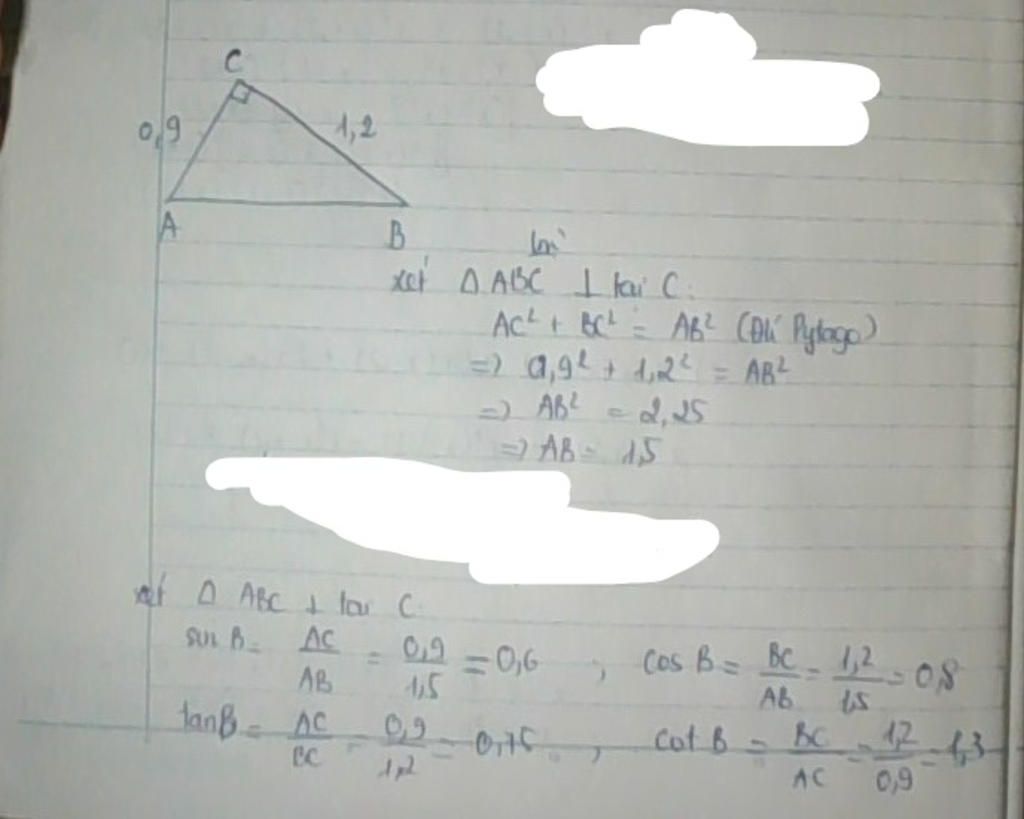 C
0,9
1,2
A
B
xét Δ ABC ⊥ tại C:
AC² + BC² = AB² (Đlí Pytago)
=> 0,9² + 1,2² = AB²
=> AB² = 2,25
=> AB = 1,5
xét Δ ABC ⊥ tại C.
sin B = AC/AB = 0,9/1,5 = 0,6 ; cos B = BC/AB = 1,2/1,5 = 0,8
tan B = AC/BC = 0,9/1,2 = 0,75 ; cot B = BC/AC = 1,2/0,9 = 1,3